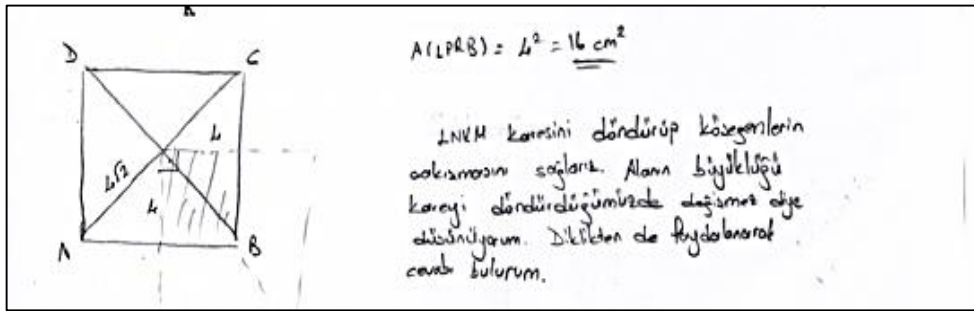 K
D
C
4
4√2
4
A
B
A(LPRB) = 4² = 16 cm²
LNKM karesini döndürüp köşegenlerin
çakışmasını sağlarız. Alanın büyüklüğü
kareyi döndürdüğümüzde değişmez diye
düşünüyorum. Diklikten de faydalanarak
cevabı bulurum.